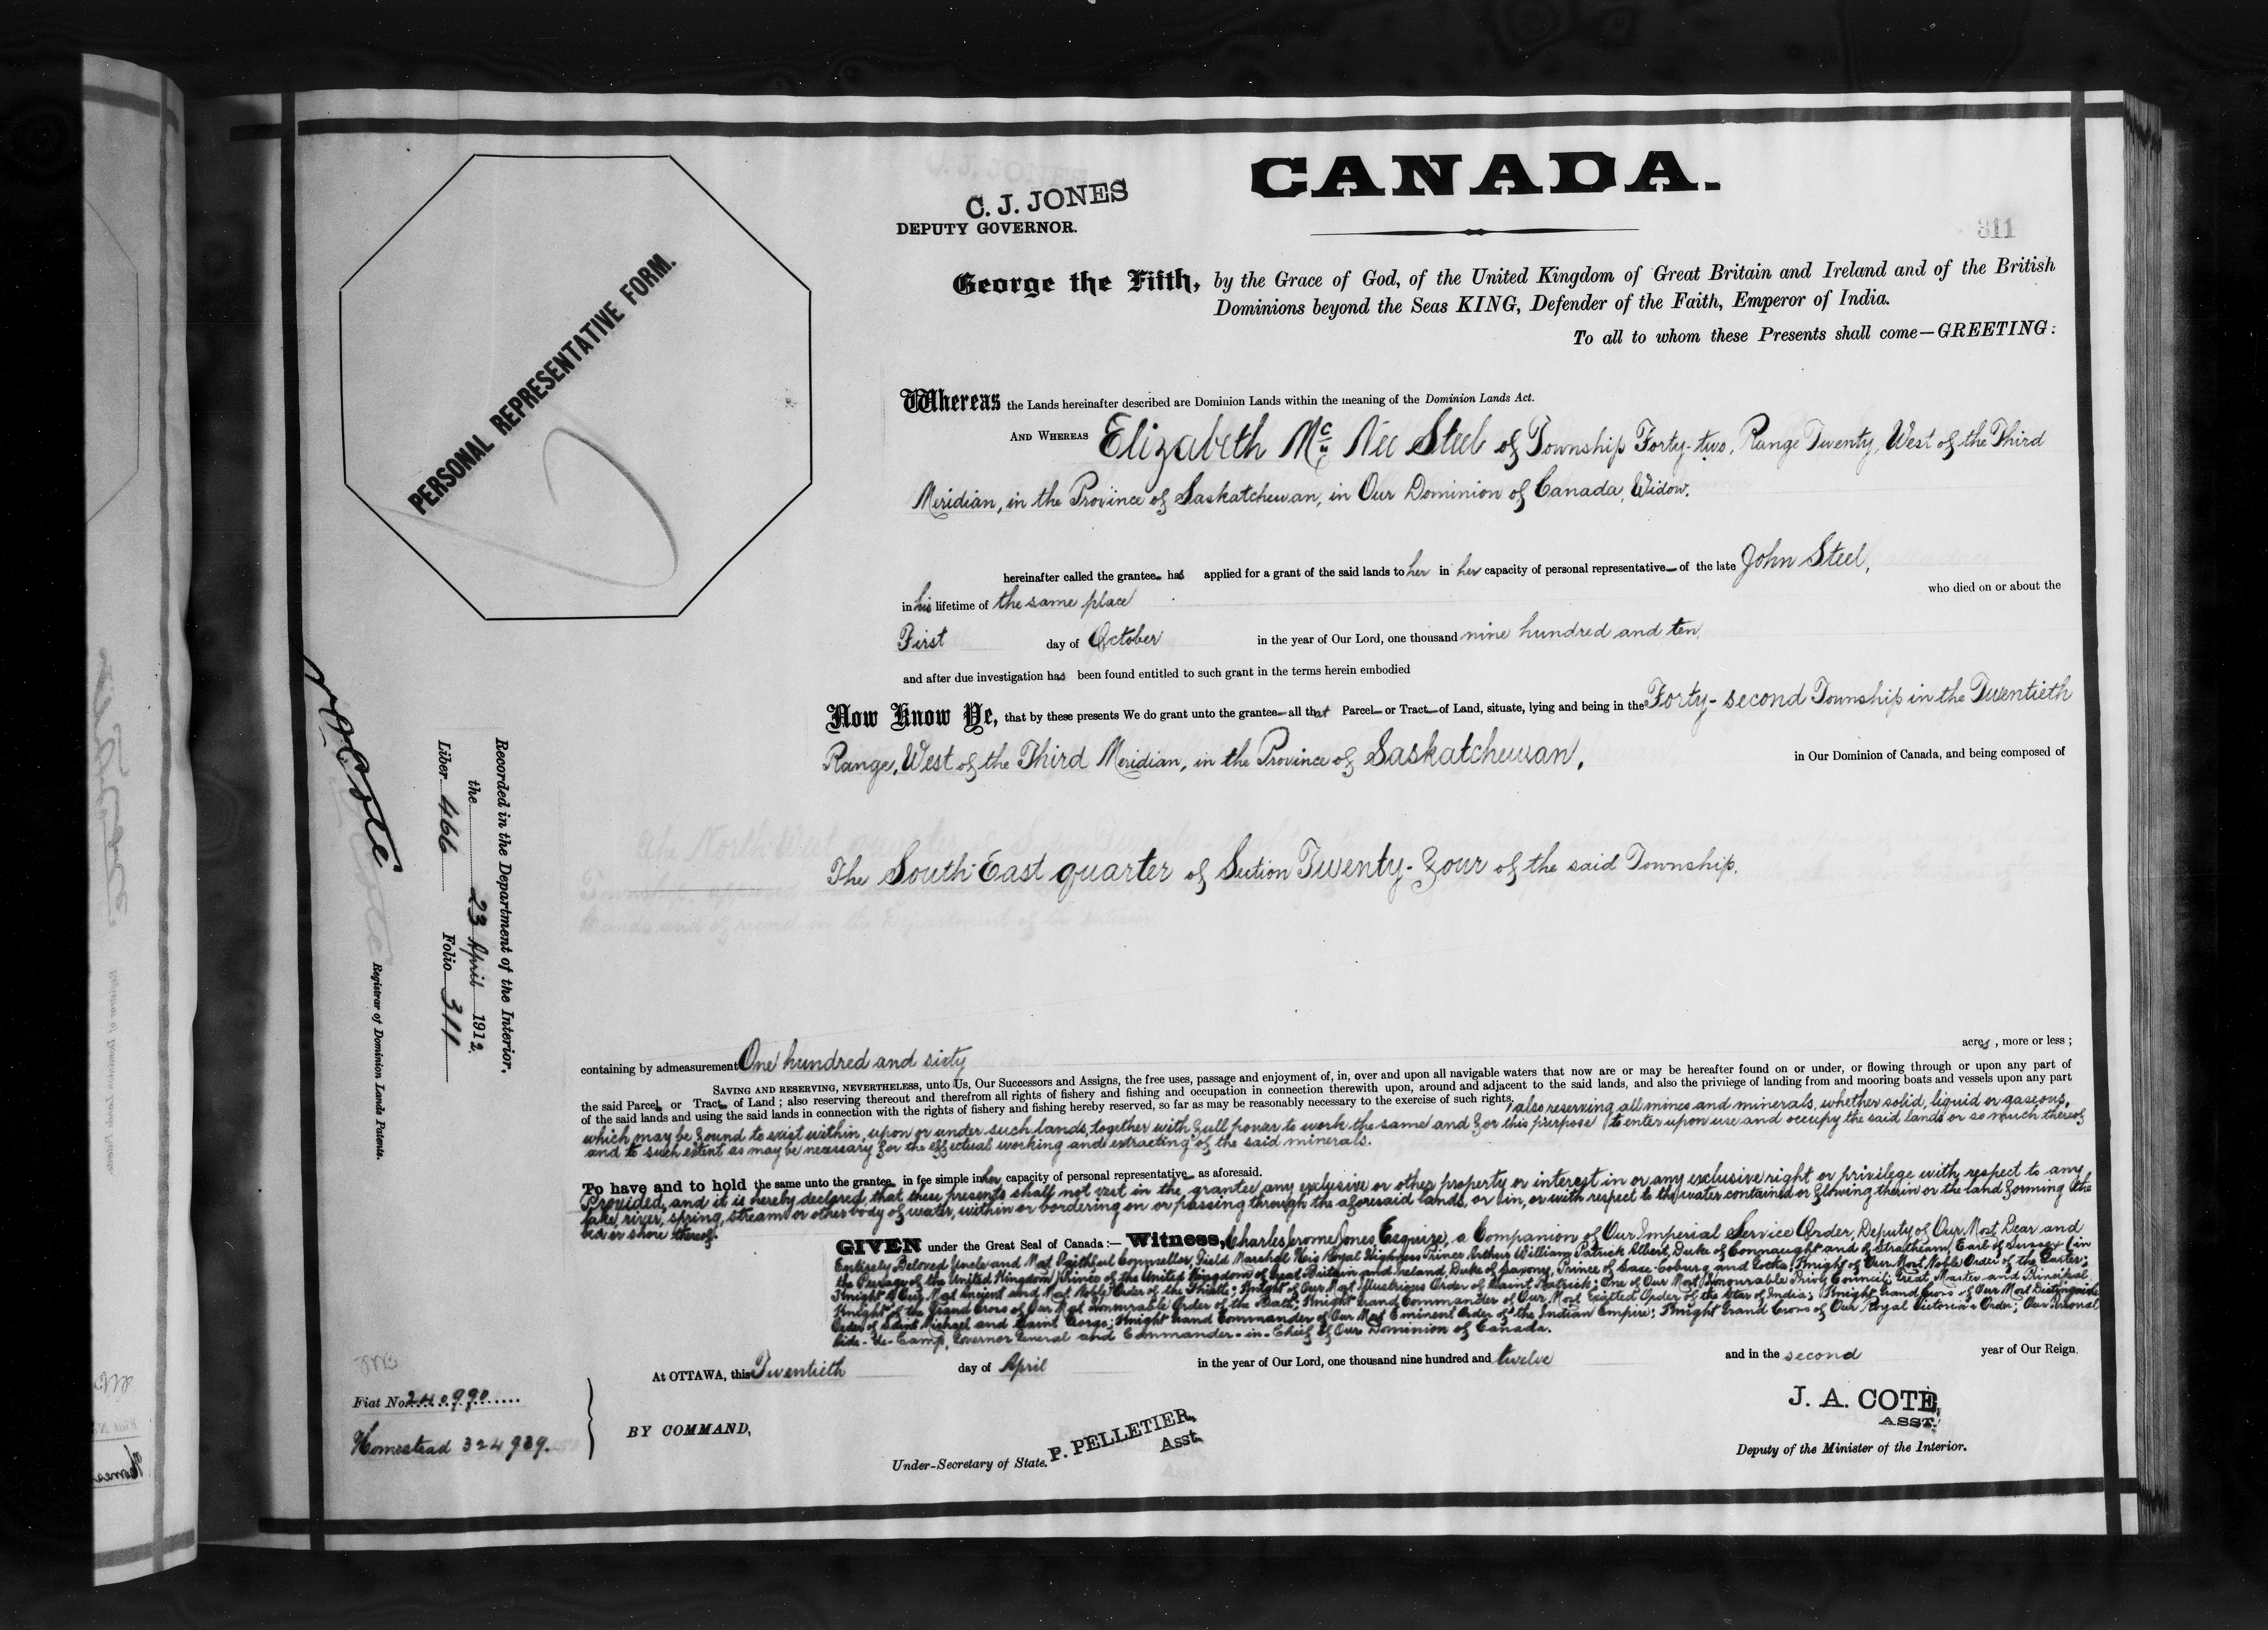 CANADA.
C. J. JONES
DEPUTY GOVERNOR.
311
George the Fifth, by the Grace of God, of the United Kingdom of Great Britain and Ireland and of the British
Dominions beyond the Seas KING, Defender of the Faith, Emperor of India.
To all to whom these Presents shall come—GREETING:
PERSONAL REPRESENTATIVE FORM.
Whereas the Lands hereinafter described are Dominion Lands within the meaning of the Dominion Lands Act.
AND WHEREAS Elizabeth Mc Nee Steel of Township Forty-two, Range Twenty, West of the Third
Meridian, in the Province of Saskatchewan, in Our Dominion of Canada, Widow.
hereinafter called the grantee has applied for a grant of the said lands to her in her capacity of personal representative of the late John Steel,
in his lifetime of the same place who died on or about the
First day of October in the year of Our Lord, one thousand nine hundred and ten
and after due investigation has been found entitled to such grant in the terms herein embodied
Now Know Ye, that by these presents We do grant unto the grantee all that Parcel or Tract of Land, situate, lying and being in the Forty-second Township in the Twentieth
Range, West of the Third Meridian, in the Province of Saskatchewan, in Our Dominion of Canada, and being composed of
The South East quarter of Section Twenty-Four of the said Township.
containing by admeasurement One hundred and sixty acres, more or less;
SAVING AND RESERVING, NEVERTHELESS, unto Us, Our Successors and Assigns, the free uses, passage and enjoyment of, in, over and upon all navigable waters that now are or may be hereafter found on or under, or flowing through or upon any part of
the said Parcel or Tract of Land; also reserving thereout and therefrom all rights of fishery and fishing and occupation in connection therewith upon, around and adjacent to the said lands, and also the priviege of landing from and mooring boats and vessels upon any part
of the said lands and using the said lands in connection with the rights of fishery and fishing hereby reserved, so far as may be reasonably necessary to the exercise of such rights; also reserving all mines and minerals, whether solid, liquid or gaseous,
which may be found to exist within, upon or under such lands, together with full power to work the same and for this purpose to enter upon use and occupy the said lands or so much thereof
and to such extent as may be necessary for the effectual working and extracting of the said minerals.
To have and to hold the same unto the grantee in fee simple in her capacity of personal representative as aforesaid.
Provided, and it is hereby declared, that these presents shall not vest in the grantee any exclusive or other property or interest in or any exclusive right or privilege with respect to any
lake, river, spring, stream or other body of water, within or bordering on or passing through the aforesaid lands, or in, or with respect to the water contained or flowing therein or the land forming the
bed or shore thereof.
GIVEN under the Great Seal of Canada:— Witness, Charles Jerome Jones, Esquire, a Companion of Our Imperial Service Order, Deputy of Our Most Dear and
Entirely Beloved Uncle and Most Faithful Counsellor, Field Marshal His Royal Highness Prince Arthur William Patrick Albert, Duke of Connaught and of Strathearn, Earl of Sussex (in
the Peerage of the United Kingdom) Prince of the United Kingdom of Great Britain and Ireland, Duke of Saxony, Prince of Saxe-Coburg and Gotha; Knight of Our Most Noble Order of the Garter;
Knight of Our Most Ancient and Most Noble Order of the Thistle; Knight of Our Most Illustrious Order of Saint Patrick; One of Our Most Honourable Privy Council; Great Master and Principal
Knight of the Grand Cross of Our Most Honourable Order of the Bath; Knight Grand Commander of Our Most Exalted Order of the Star of India; Knight Grand Cross of Our Most Distinguished
Order of Saint Michael and Saint George; Knight Grand Commander of Our Most Eminent Order of the Indian Empire; Knight Grand Cross of Our Royal Victorian Order; Our Personal
Aide-de-Camp, Governor General and Commander-in-Chief of Our Dominion of Canada.
At OTTAWA, this Twentieth day of April in the year of Our Lord, one thousand nine hundred and twelve and in the second year of Our Reign.
BY COMMAND,
P. PELLETIER,
Asst.
Under-Secretary of State.
J. A. COTE,
ASST.
Deputy of the Minister of the Interior.
Fiat No. 240990
Homestead 324939.
Recorded in the Department of the Interior,
the 23 April 1912.
Liber 466 Folio 311
Registrar of Dominion Lands Patents.